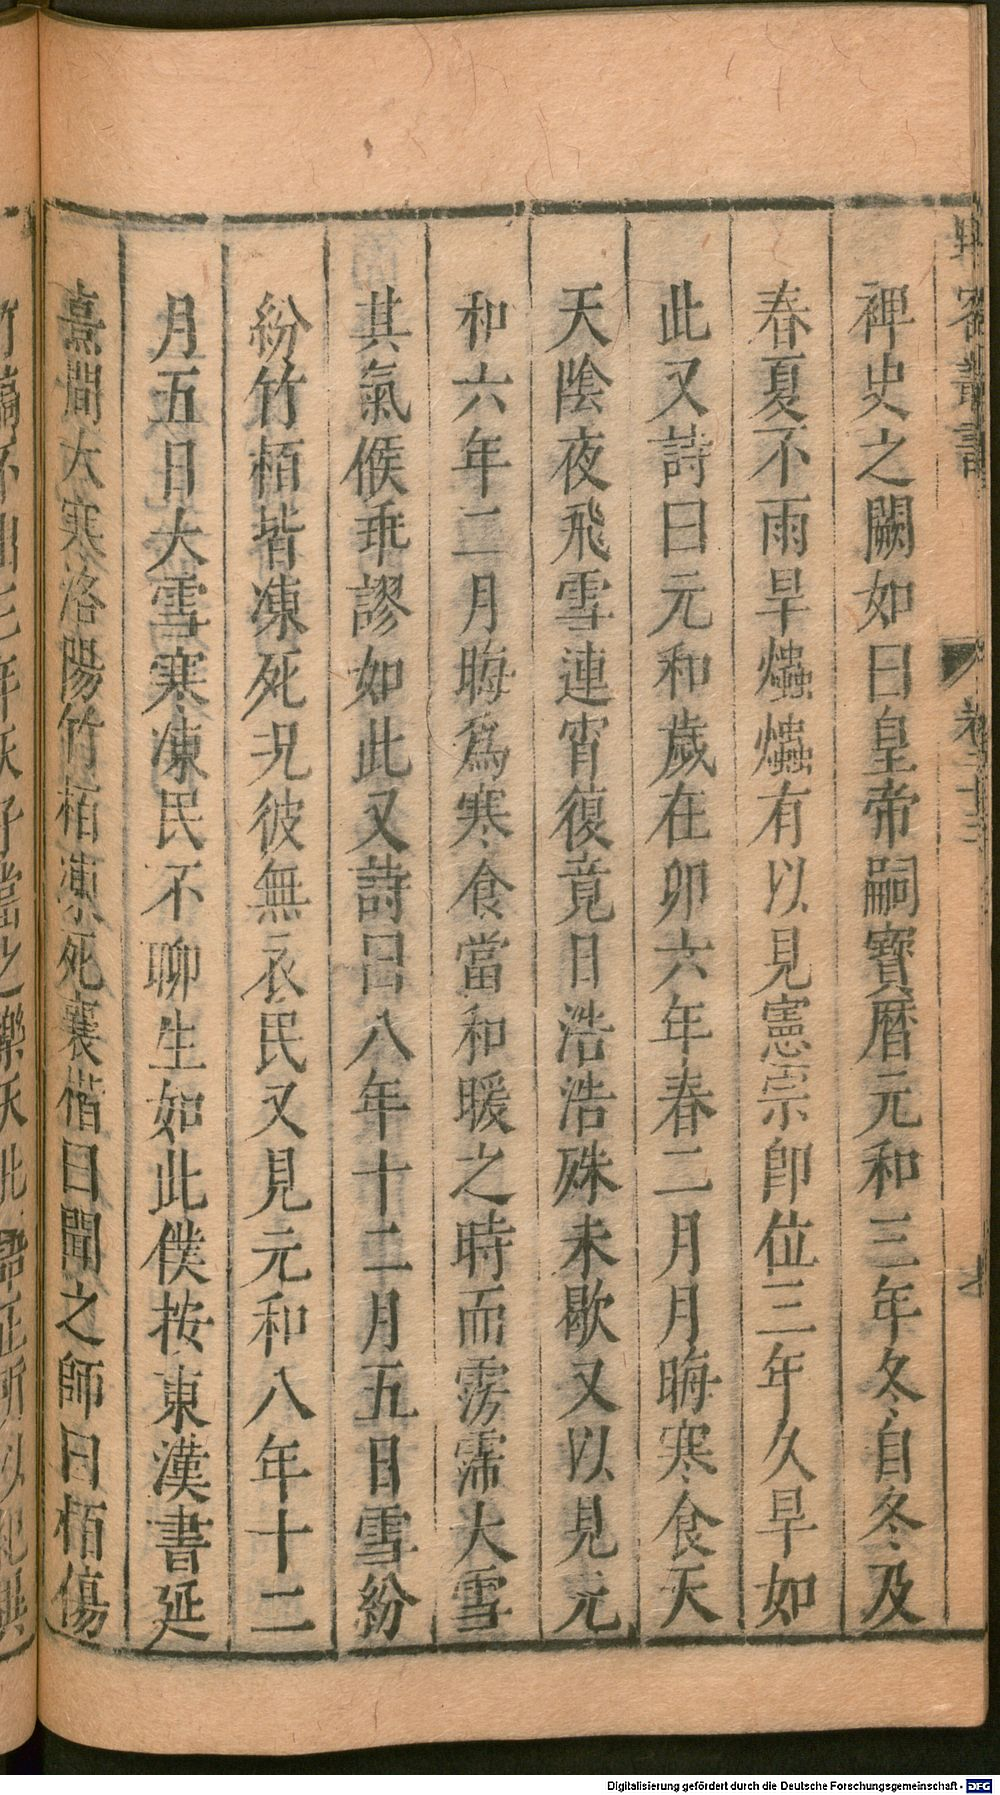 裨史之闕如曰皇帝嗣寶曆元和三年冬自冬及
春夏不雨旱爞爞有以見憲宗卽位三年久旱如
此又詩曰元和歲在卯六年春二月月晦寒食天
天陰夜飛雪連宵復竟日浩浩殊未歇又以見元
和六年二月晦爲寒食當和暖之時而雱霈大雪
其氣候乖謬如此又詩曰八年十二月五日雪紛
紛竹栢皆凍死況彼無衣民又見元和八年十二
月五日大雪寒凍民不聊生如此僕按東漢書延
熹間大寒洛陽竹栢凍死襄楷曰聞之師曰栢傷
Digitalisierung gefördert durch die Deutsche Forschungsgemeinschaft - DFG